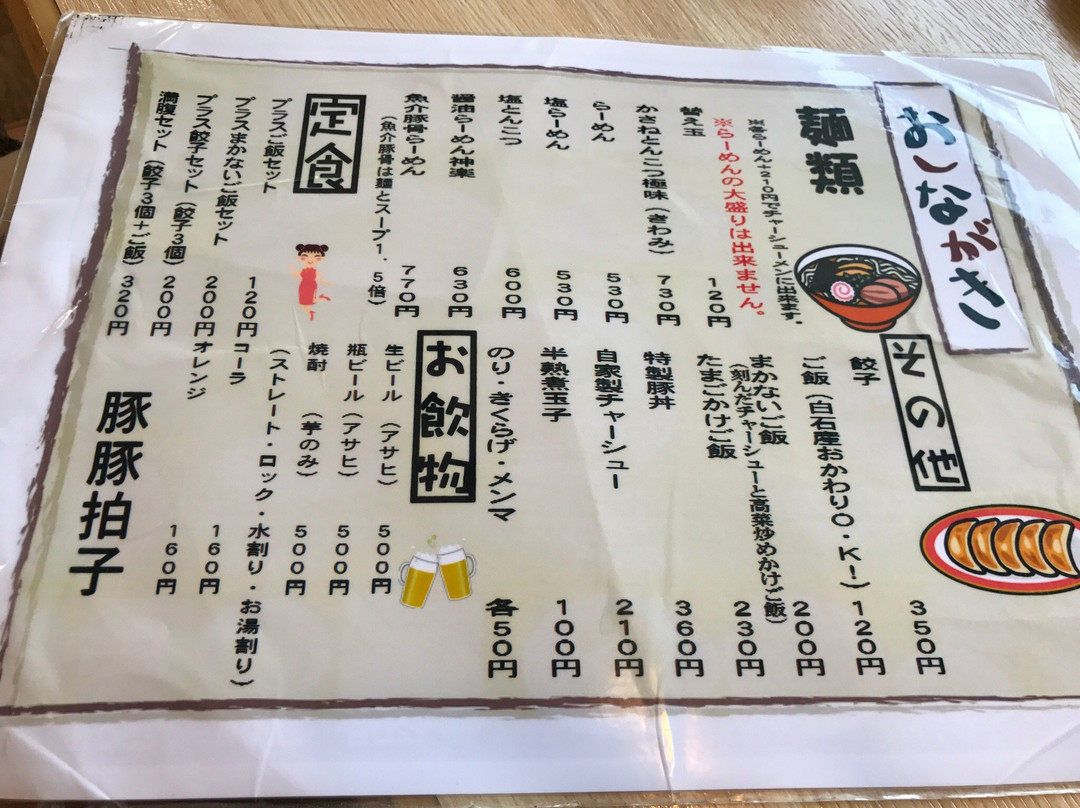 おしながき
麺類
※各らーめん+210円でチャーシューメンに出来ます。
※らーめんの大盛りは出来ません。
替え玉 120円
かさねとんこつ極味(きわみ) 730円
らーめん 530円
塩らーめん 530円
塩とんこつ 600円
醤油らーめん神楽 630円
魚介豚骨らーめん 770円
(魚介豚骨は麺とスープ1.5倍)
定食
プラスご飯セット 120円
プラスまかないご飯セット 200円
プラス餃子セット(餃子3個) 200円
満腹セット(餃子3個+ご飯) 320円
その他
餃子 350円
ご飯(白石産おかわりO・K!) 120円
まかないご飯 200円
(刻んだチャーシューと高菜炒めかけご飯)
たまごかけご飯 230円
特製豚丼 360円
自家製チャーシュー 210円
半熟煮玉子 100円
のり・きくらげ・メンマ 各50円
お飲物
生ビール(アサヒ) 500円
瓶ビール(アサヒ) 500円
焼酎(芋のみ) 500円
(ストレート・ロック・水割り・お湯割り)
コーラ 160円
オレンジ 160円
豚豚拍子